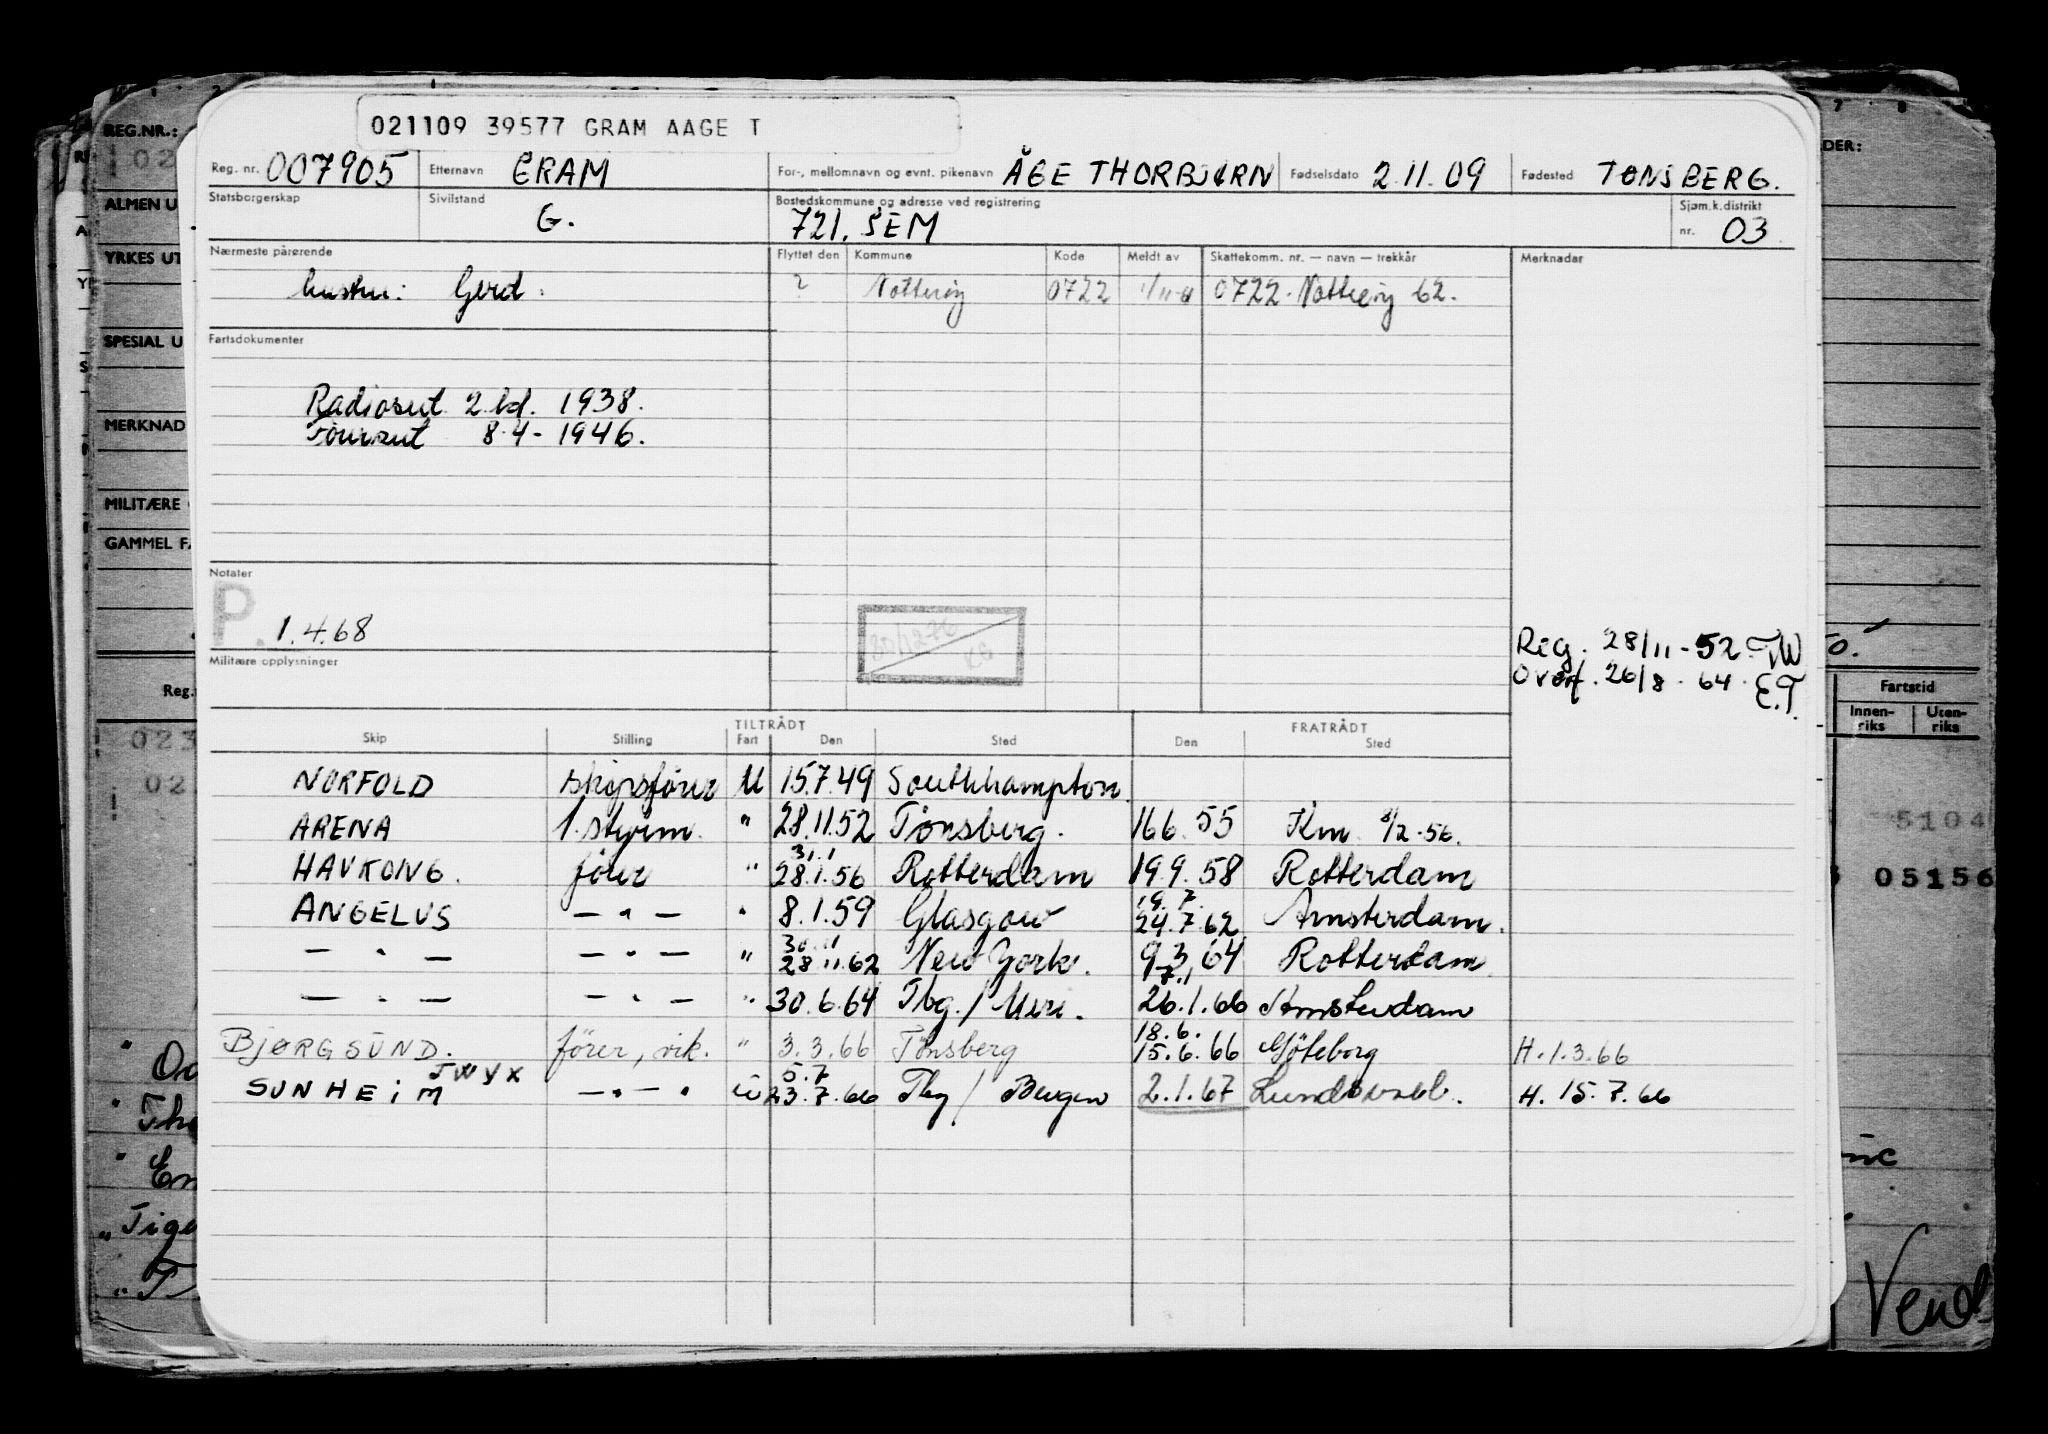 021109 39577 GRAM AAGE T
Reg. nr. 007905 Etternavn GRAM For-, mellomnavn og evnt. pikenavn ÅGE THORBJØRN Fødselsdato 2.11.09 Fødested TØNSBERG.
Statsborgerskap Sivilstand G. Bostedskommune og adresse ved registrering 721. SEM Sjøm.k.distrikt nr. 03
Nærmeste pårørende Flyttet den Kommune Kode Meldt av Skattekomm. nr. — navn — trekkår Merknader
hustru: Gerd. ? Nøtterøy 0722 0722. Nøtterøy 62.
Fartsdokumenter
Radiosert 2. kl. 1938.
8.4 - 1946.
Notater
P. 1.4.68
30/12-76
Reg. 28/11-52 TW
Overf. 26/8-64. E.T.
Militære opplysninger
TILTRÅDT FRATRÅDT
Skip Stilling Fart Den Sted Den Sted
NORFOLD skipsfører U 15.7.49 Southhampton
ARENA 1. styrm. " 28.11.52 Tønsberg. 16.6.55 Km 8/2-56.
31.1
HAVKONG. fører " 28.1.56 Rotterdam 19.9.58 Rotterdam
19.7.
ANGELUS — " — " 8.1.59 Glasgow 24.7.62 Amsterdam.
30.11
— " — — " — " 28.11.62 New York. 9.3.64 Rotterdam
7.1
— " — — " — " 30.6.64 Tbg./ 26.1.66 Amsterdam
18.6.
BJØRGSUND. fører, vik. " 3.3.66 Tønsberg 15.6.66 Göteborg H.1.3.66
JWYX 5.7
SUNHEIM — " — " 23.7.66 Tbg / Bergen 2.1.67 H. 15.7.66
REG.NR.:
02
ALMEN U
YRKES UT
SPESIAL U
MERKNAD
MILITÆRE
GAMMEL FA
Reg.
023
02
DER:
Fartstid
Innen-riks Uten-riks
5104
05156
Vend